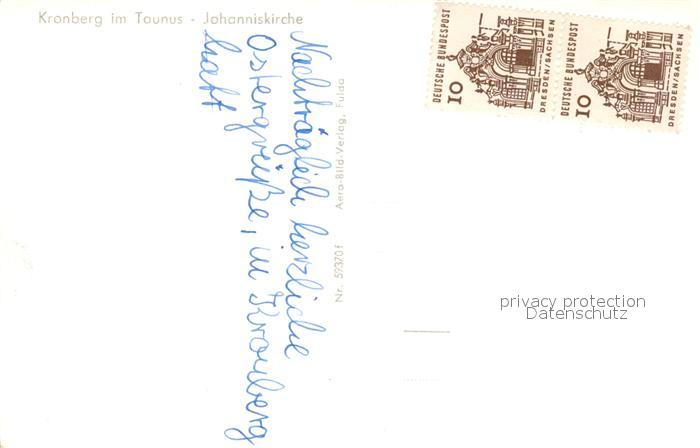 Kronberg im Taunus - Johanniskirche
Nachträglich herzliche
Ostergrüße, in Kronberg
haft
Aero-Bild-Verlag, Fulda
Nr. 59370f
DEUTSCHE BUNDESPOST
10
DRESDEN/SACHSEN
DEUTSCHE BUNDESPOST
10
DRESDEN/SACHSEN
privacy protection
Datenschutz